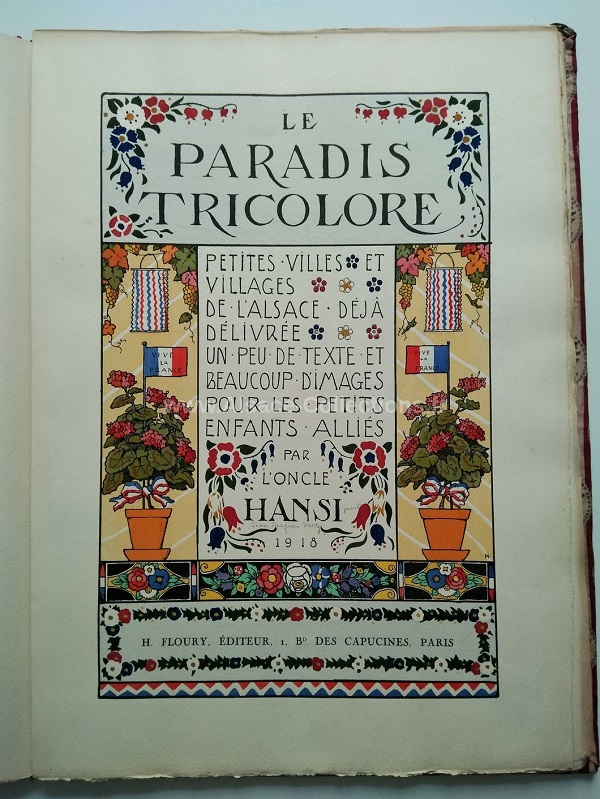 LE
PARADIS
TRICOLORE
PETITES · VILLES ET
VILLAGES
DE · L'ALSACE · DÉJÀ
DÉLIVRÉE
UN · PEU · DE · TEXTE · ET
BEAUCOUP · D'IMAGES
POUR · LES · PETITS
ENFANTS · ALLIÉS
PAR
L'ONCLE
HANSI
1918
VIVE
LA
FRANCE
VIVE
LA
FRANCE
H.
H. FLOURY, ÉDITEUR, 1, Bᴅ DES CAPUCINES, PARIS